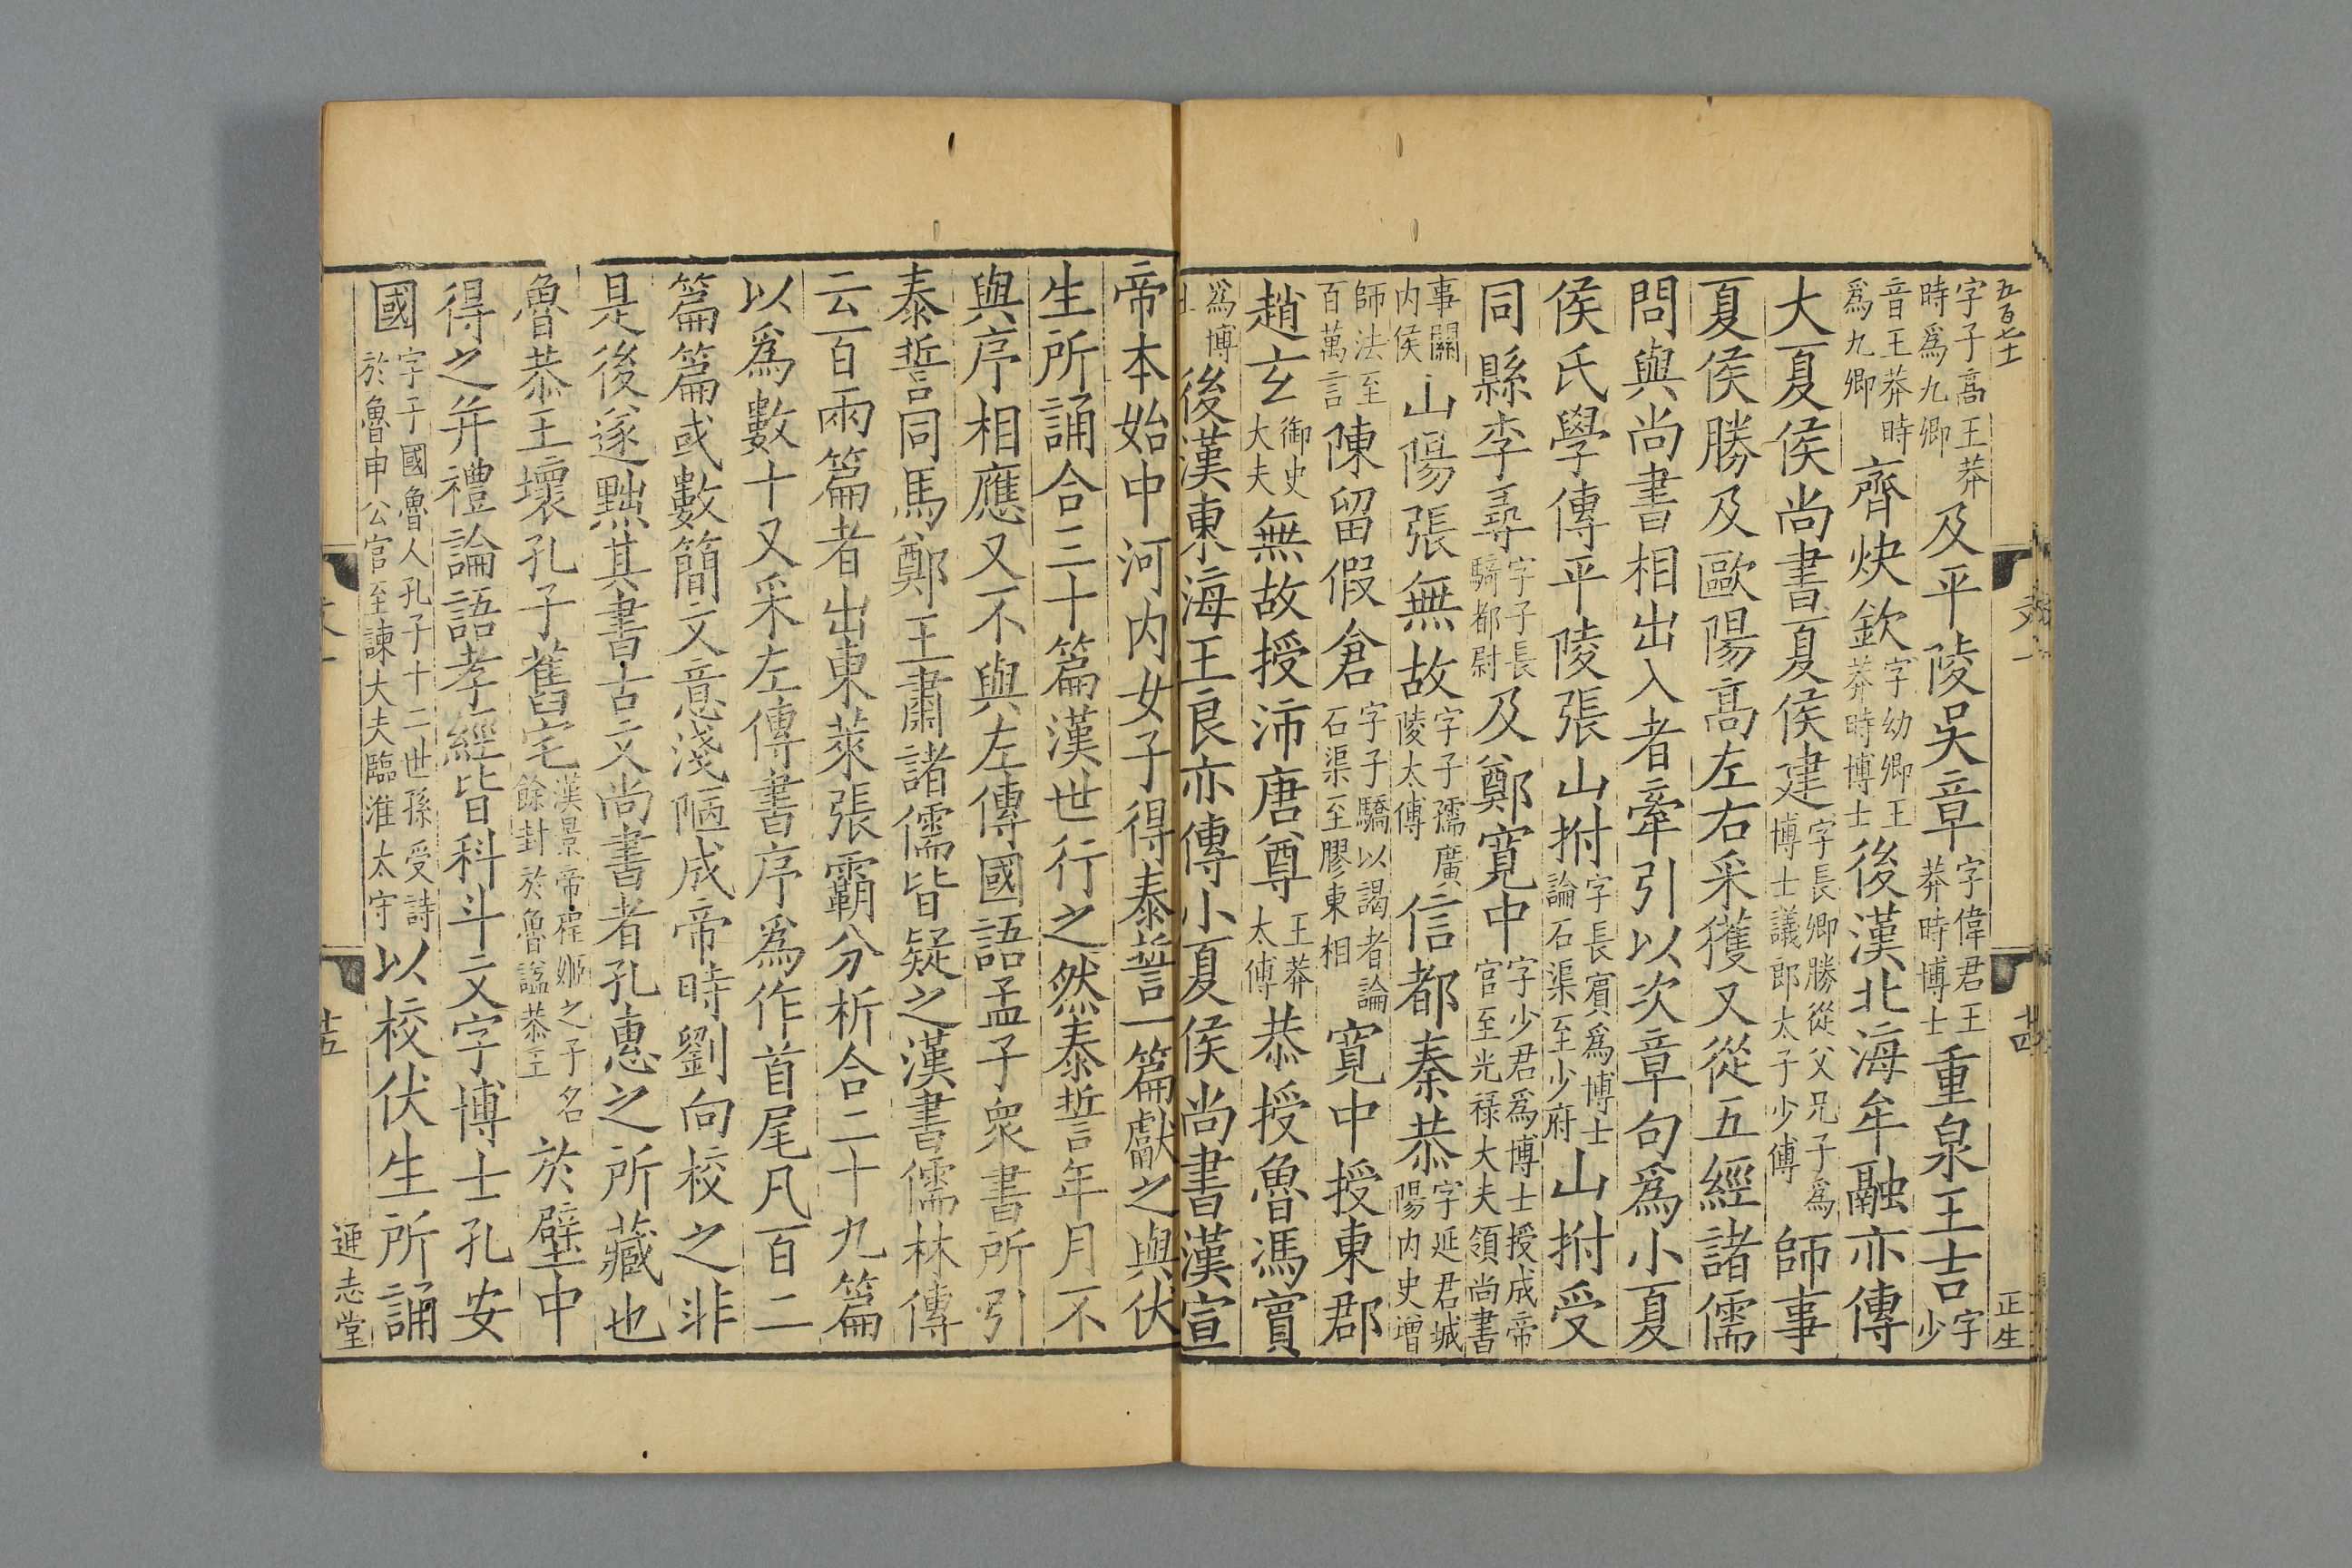 五百七十 正生
字子高王莽時爲九卿及平陵吳章字偉君王莽時博士重泉王吉字少
音王莽時爲九卿齊炔欽字幼卿王莽時博士後漢北海牟融亦傳
大夏侯尚書夏侯建字長卿勝從父兄子爲博士議郎太子少傅師事
夏侯勝及歐陽高左右采獲又從五經諸儒
問與尚書相出入者牽引以次章句爲小夏
侯氏學傳平陵張山拊字長賓爲博士論石渠至少府山拊受
同縣李尋字子長騎都尉及鄭寬中字少君爲博士授成帝官至光禄大夫領尚書
事關内侯山陽張無故字子孺廣陵太傅信都秦恭字延君城陽内史增
師法至百萬言陳留假倉字子驕以謁者論石渠至膠東相寬中授東郡
趙玄御史大夫無故授沛唐尊王莽太傅恭授魯馮賓
爲博士後漢東海王良亦傳小夏侯尚書漢宣
帝本始中河内女子得泰誓一篇獻之與伏
生所誦合三十篇漢世行之然泰誓年月不
與序相應又不與左傳國語孟子衆書所引
泰誓同馬鄭王肅諸儒皆疑之漢書儒林傳
云百兩篇者出東萊張霸分析合二十九篇
以爲數十又采左傳書序爲作首尾凡百二
篇篇或數簡文意淺陋成帝時劉向校之非
是後遂黜其書古文尚書者孔惠之所藏也
魯恭王壞孔子舊宅漢景帝程姬之子名餘封於魯謚恭王於壁中
得之并禮論語孝經皆科斗文字博士孔安
國字子國魯人孔子十二世孫受詩於魯申公官至諫大夫臨淮太守以校伏生所誦
通志堂